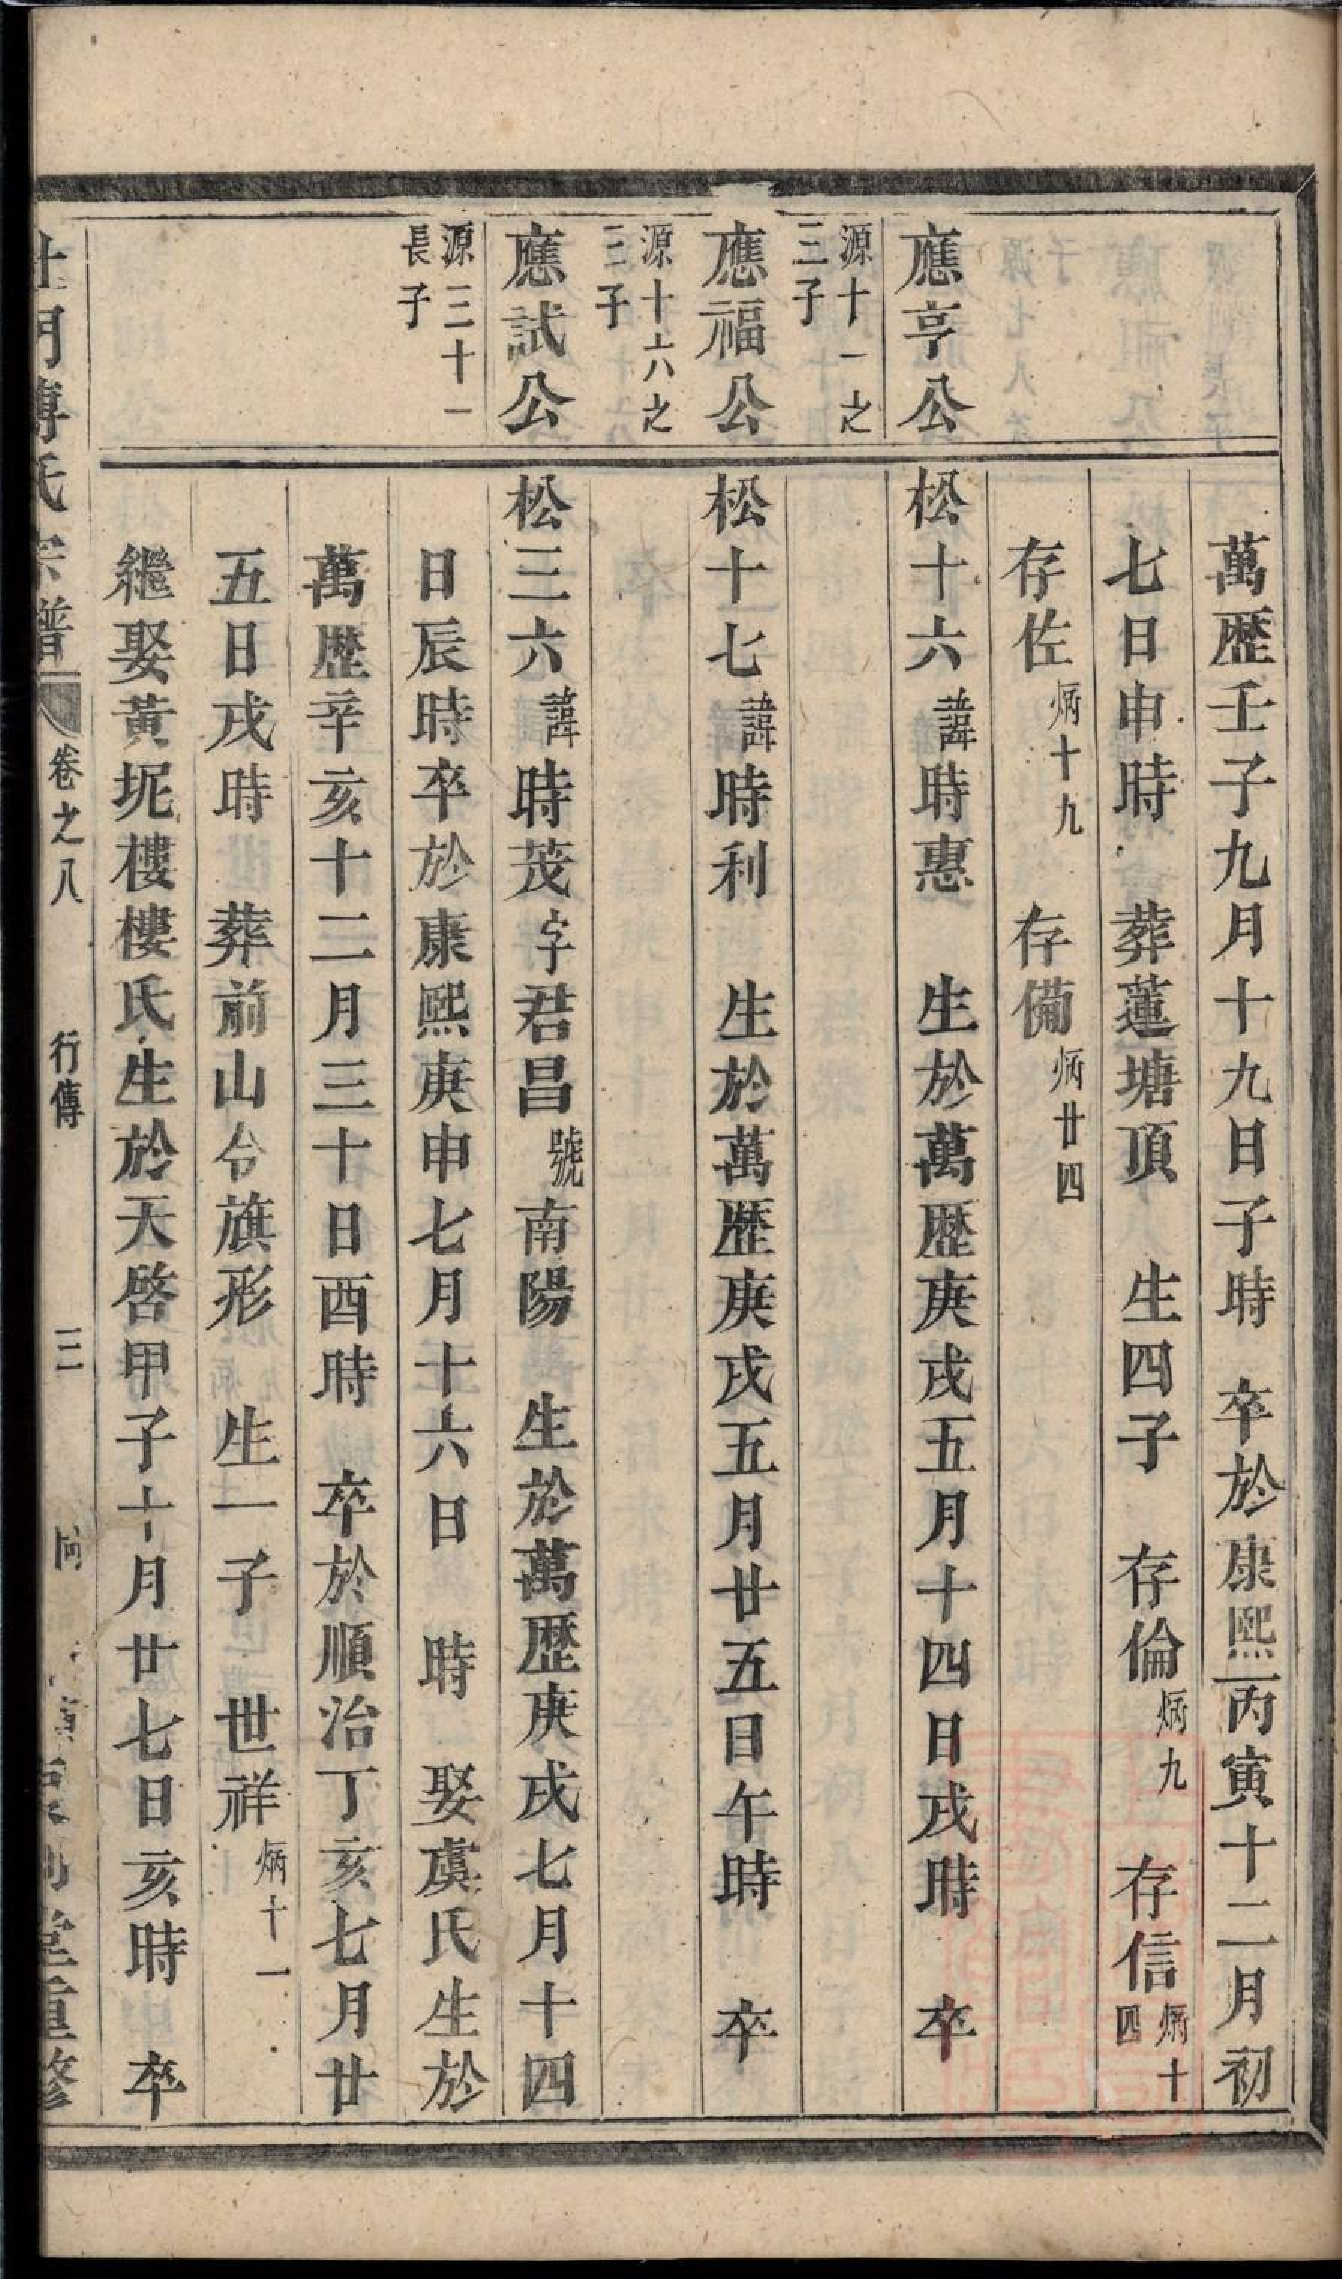 萬歴壬子九月十九日子時 卒於康熙丙寅十二月初
七日申時 葬蓮塘頂 生四子 存倫炳九 存信炳十四
存佐炳十九 存備炳廿四
應亨公
源十一之
三子
松十六諱時惠 生於萬歴庚戌五月十四日戌時 卒
應福公
源十六之
三子
松十七諱時利 生於萬歴庚戌五月廿五日午時 卒
應試公
源三十一
長子
松三六諱時茂字君昌號南陽 生於萬歴庚戌七月十四
日辰時卒於康熙庚申七月十六日 時 娶虞氏生於
萬歴辛亥十二月三十日酉時 卒於順治丁亥七月廿
五日戌時 葬前山令旗形 生一子 世祥炳十一
繼娶黃坭樓樓氏生於天啓甲子十月廿七日亥時 卒
杜門傅氏宗譜 卷之八 行傳 三 堂重修